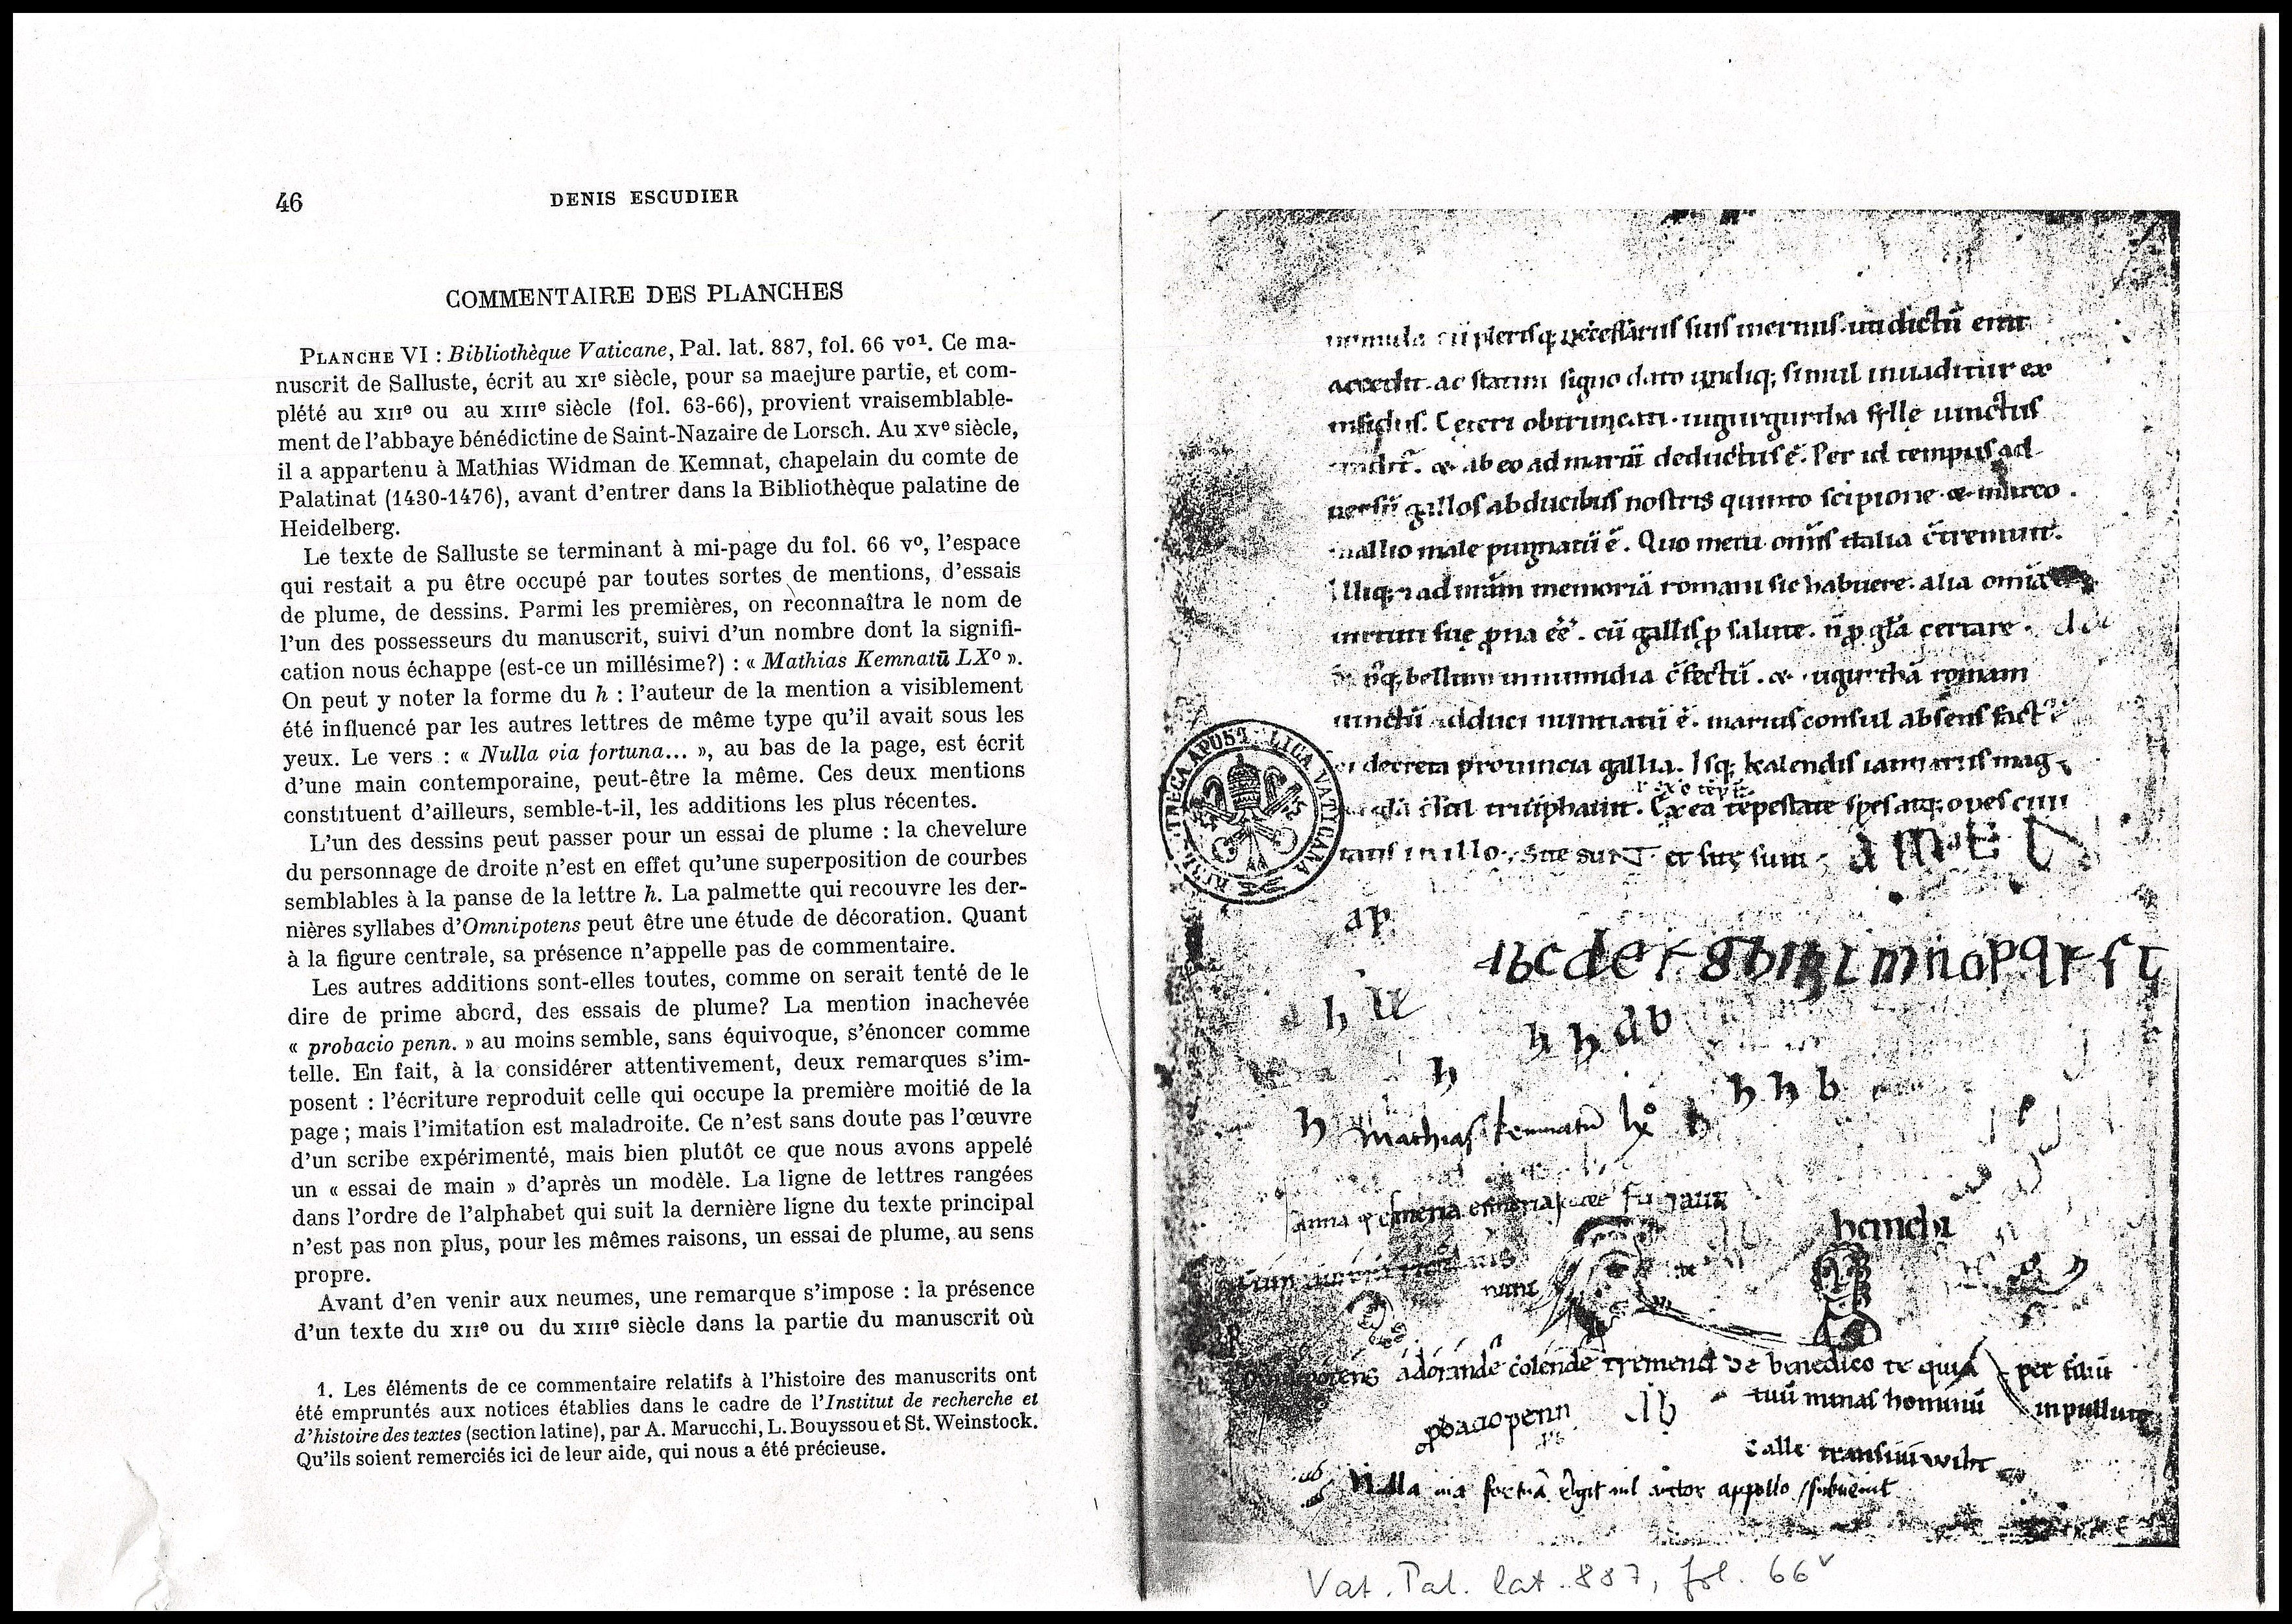 46
DENIS ESCUDIER
COMMENTAIRE DES PLANCHES
PLANCHE VI : Bibliothèque Vaticane, Pal. lat. 887, fol. 66 vo1. Ce ma-
nuscrit de Salluste, écrit au XIe siècle, pour sa maejure partie, et com-
plété au XIIe ou au XIIIe siècle (fol. 63-66), provient vraisemblable-
ment de l'abbaye bénédictine de Saint-Nazaire de Lorsch. Au XVe siècle,
il a appartenu à Mathias Widman de Kemnat, chapelain du comte de
Palatinat (1430-1476), avant d'entrer dans la Bibliothèque palatine de
Heidelberg.
Le texte de Salluste se terminant à mi-page du fol. 66 vo, l'espace
qui restait a pu être occupé par toutes sortes de mentions, d'essais
de plume, de dessins. Parmi les premières, on reconnaîtra le nom de
l'un des possesseurs du manuscrit, suivi d'un nombre dont la signifi-
cation nous échappe (est-ce un millésime?) : « Mathias Kemnatū LXo ».
On peut y noter la forme du h : l'auteur de la mention a visiblement
été influencé par les autres lettres de même type qu'il avait sous les
yeux. Le vers : « Nulla via fortuna... », au bas de la page, est écrit
d'une main contemporaine, peut-être la même. Ces deux mentions
constituent d'ailleurs, semble-t-il, les additions les plus récentes.
L'un des dessins peut passer pour un essai de plume : la chevelure
du personnage de droite n'est en effet qu'une superposition de courbes
semblables à la panse de la lettre h. La palmette qui recouvre les der-
nières syllabes d'Omnipotens peut être une étude de décoration. Quant
à la figure centrale, sa présence n'appelle pas de commentaire.
Les autres additions sont-elles toutes, comme on serait tenté de le
dire de prime abord, des essais de plume? La mention inachevée
« probacio penn. » au moins semble, sans équivoque, s'énoncer comme
telle. En fait, à la considérer attentivement, deux remarques s'im-
posent : l'écriture reproduit celle qui occupe la première moitié de la
page ; mais l'imitation est maladroite. Ce n'est sans doute pas l'œuvre
d'un scribe expérimenté, mais bien plutôt ce que nous avons appelé
un « essai de main » d'après un modèle. La ligne de lettres rangées
dans l'ordre de l'alphabet qui suit la dernière ligne du texte principal
n'est pas non plus, pour les mêmes raisons, un essai de plume, au sens
propre.
Avant d'en venir aux neumes, une remarque s'impose : la présence
d'un texte du XIIe ou du XIIIe siècle dans la partie du manuscrit où
1. Les éléments de ce commentaire relatifs à l'histoire des manuscrits ont
été empruntés aux notices établies dans le cadre de l'Institut de recherche et
d'histoire des textes (section latine), par A. Marucchi, L. Bouyssou et St. Weinstock.
Qu'ils soient remerciés ici de leur aide, qui nous a été précieuse.
suis inermis. uti dictū erat
accedit. ac statim signo dato undiq; simul inuaditur ex
insidiis. Ceteri obtruncati. iugurgurtha sylle uinctus
& ab eo ad mariū deductus ē. Per id tempus ad
uersū gallos ab ducibus nostris quinto scipione & marco
mallio male pugnatū ē. Quo metu om̄is italia c̄tremuit.
Illiq; ad nr̄am memoriā romani sic habuere. alia omīa
uirtuti suę ꝓna eēˊ. cū gallis ꝓ salute. n̄ ꝓ gl̄a certare.
bellum in numidia c̄fectū. & iugurthā romam
uinctū adduci nuntiatū ē. marius consul absens fact
ei decreta prouincia gallia. Isq; kalendis ianuariis mag
triūphauit. Ex ea tēpestate spes atq; opes ciui
tatis in illo. site sunt et sitę sunt AMEN
ap
abcdefghiklmnopqrst
h
h h d b
h
h h b
h mathias kemnatū lxº h
nunc
omnipotens adorande colende tremende benedico te quia per filiū
tuū minas hominū
ꝓbacio penn
calle transiui
Nulla uia fortunā
appollo subuenit
BIBLIOTHECA APOSTOLICA VATICANA
Vat. Pal. lat. 887, fol. 66v